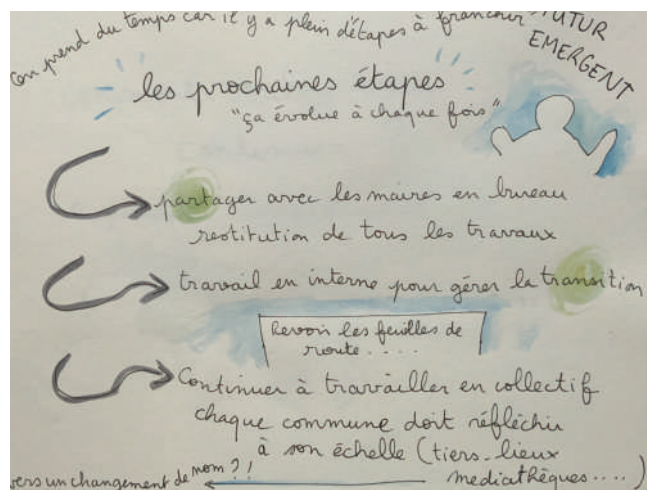 on prend du temps car il y a plein d'étapes à francour
FUTUR
EMERGENT
les prochaines étapes
"ça évolue à chaque fois"
partager avec les maires en bureau
restitution de tous les travaux
travail en interne pour gérer la transition
Revoir les feuilles de
route....
Continuer à travailler en collectif
chaque commune doit réfléchir
à son échelle (tiers-lieux
mediathèques....)
vers un changement de nom ?!